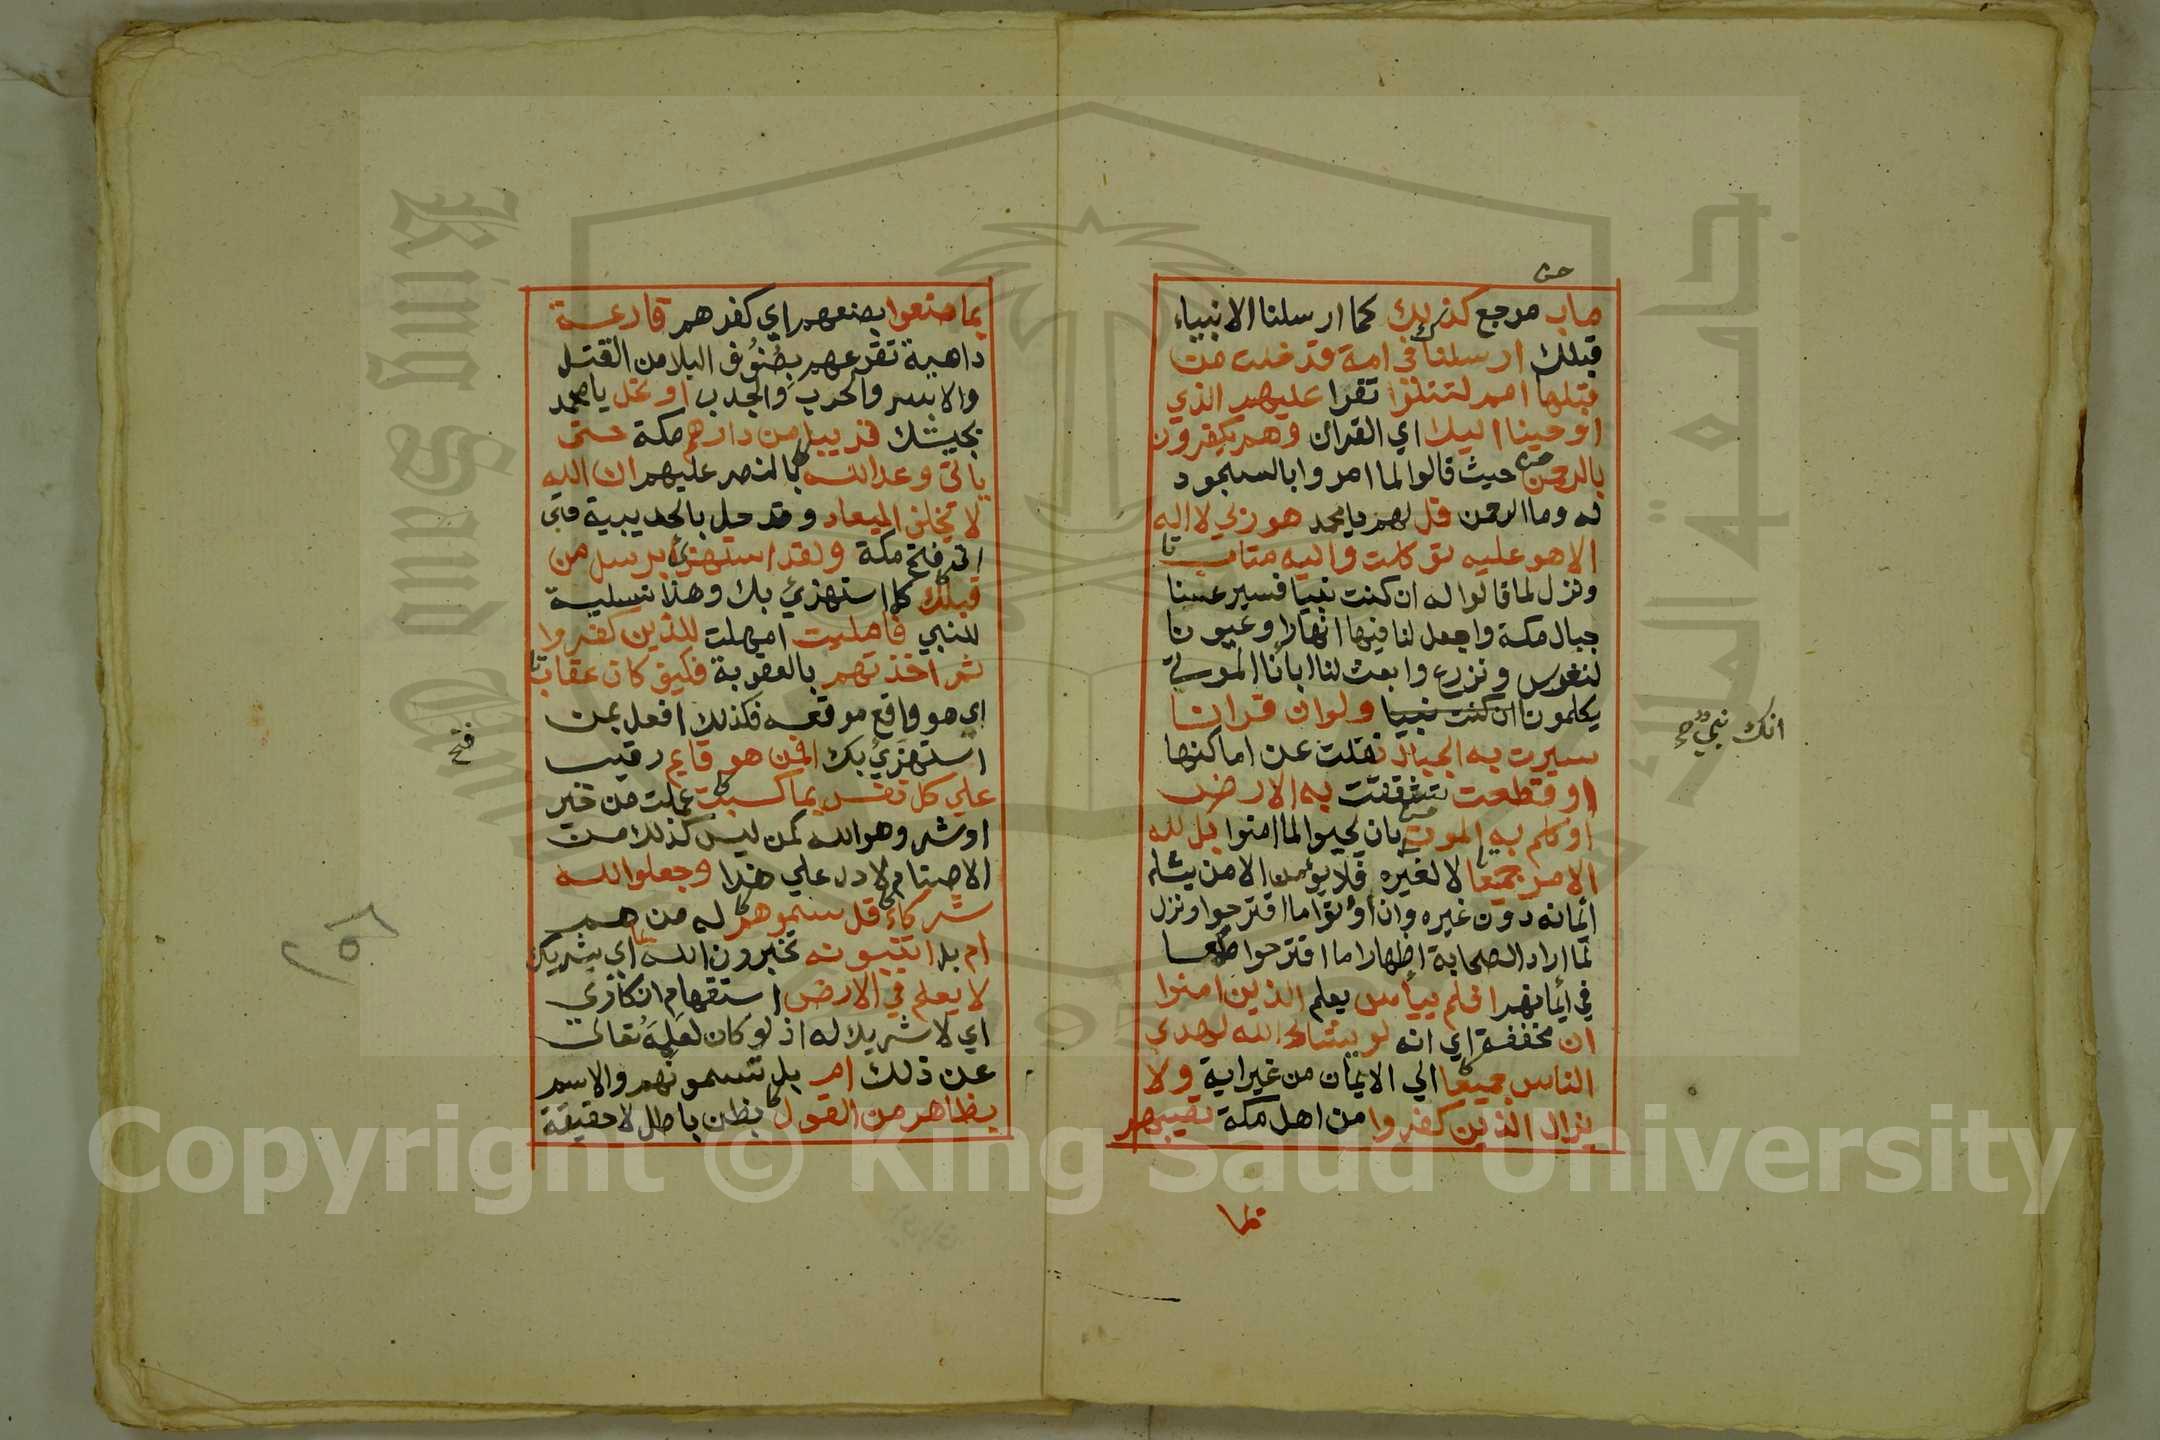 حسن
ماب مرجع كذلك كما ارسلنا الانبياء
قبلك ارسلناك في امة قد خلت من
قبلها امم لتتلوا تقرا عليهم الذي
اوحينا اليك اي القران وهم يكفرون
بالرحمن حيث قالوا لما امروا بالسجود
له وما الرحمن قل لهم يا محمد هو ربي لا اله
الا هو عليه توكلت واليه متاب
ونزل لما قالوا له ان كنت نبيا فسير عنا
جبال مكة واجعل لنا فيها انهارا وعيونا
لنغرس ونزرع وابعث لنا اباءنا الموتي
يكلمونا ان كنت نبيا ولو ان قرانا
انك نبي صح
سيرت به الجبال نقلت عن اماكنها
او قطعت شققت به الارض
او كلم به الموتي بان يحيوا لما امنوا بل لله
الامر جميعا لا لغيره فلا يؤمن الا من يشاء
ايمانه دون غيره وان اوتوا ما اقترحوا ونزل
لما اراد الصحابة اظهار ما اقترحوا طمعا
في ايمانهم افلم ييأس يعلم الذين امنوا
ان مخففة اي انه لو يشاء الله لهدي
الناس جميعا الي الايمان من غير اية ولا
يزال الذين كفروا من اهل مكة تصيبهم
بما
بما صنعوا بصنعهم اي كفرهم قارعة
داهية تقرعهم بصنوف البلا من القتل
والاسر والحرب والجدب او تحل يا محمد
بجيشك قريبا من دارهم مكة حتى
ياتي وعد الله بالنصر عليهم ان الله
لا يخلف الميعاد وقد حل بالحديبية حتى
اتى فتح مكة ولقد استهزئ برسل من
قبلك كما استهزئ بك وهذا تسلية
للنبي فامليت امهلت للذين كفروا
ثم اخذتهم بالعقوبة فكيف كان عقاب
اي هو واقع موقعه فكذلك افعل بمن
استهزئ بك افمن هو قايم رقيب
فتح
علي كل نفس بما كسبت عملت من خير
او شر وهو الله كمن ليس كذلك من
الاصنام لا دل علي هذا وجعلوا لله
شركاء قل سموهم له من هم
ام بل اتنبونه تخبرون الله اي بشريك
لا يعلم في الارض استفهام انكاري
اي لا شريك له اذ لو كان لعلمه تعالى
عن ذلك ام بل تسمونهم والاسم
بظاهر من القول بظن باطل لا حقيقة